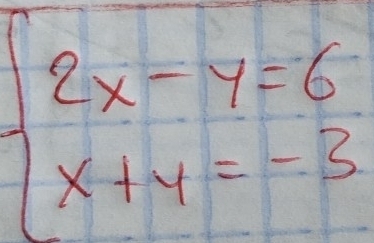 2x - y = 6
x + y = -3